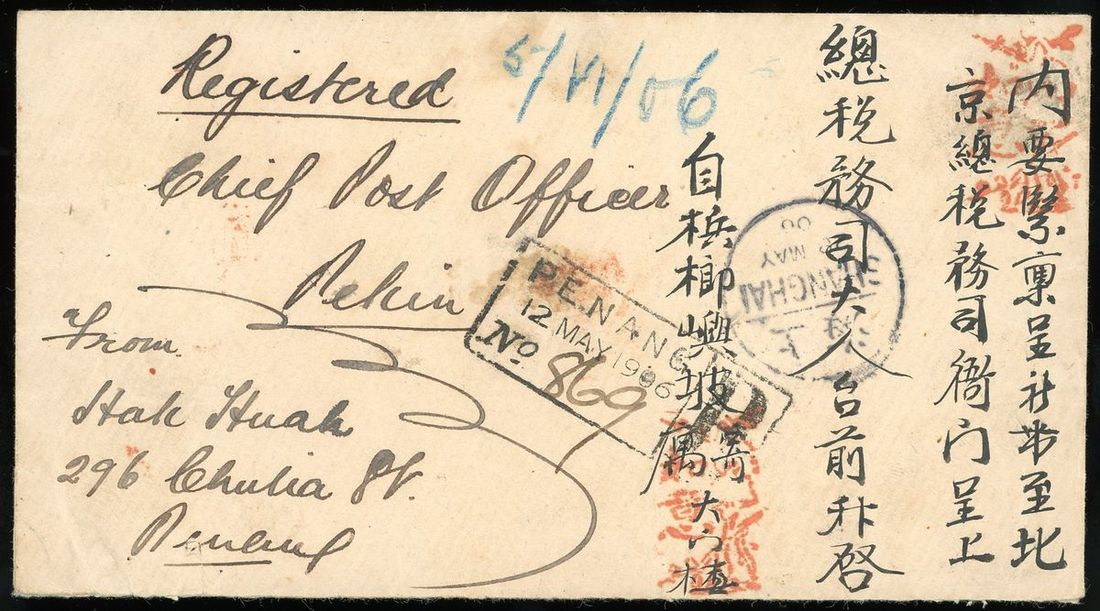 Registered
5/VI/06
Chief Post Officer
Pekin
From
296 Chulia St.
Penang
PENANG
12 MAY 1906
No 869
R
SHANGHAI
MAY
06
上海
內要緊稟呈 至北
京總稅務司衙门呈上
總稅務司大人台前 啓
自梹榔嶼坡 寄
大门楼